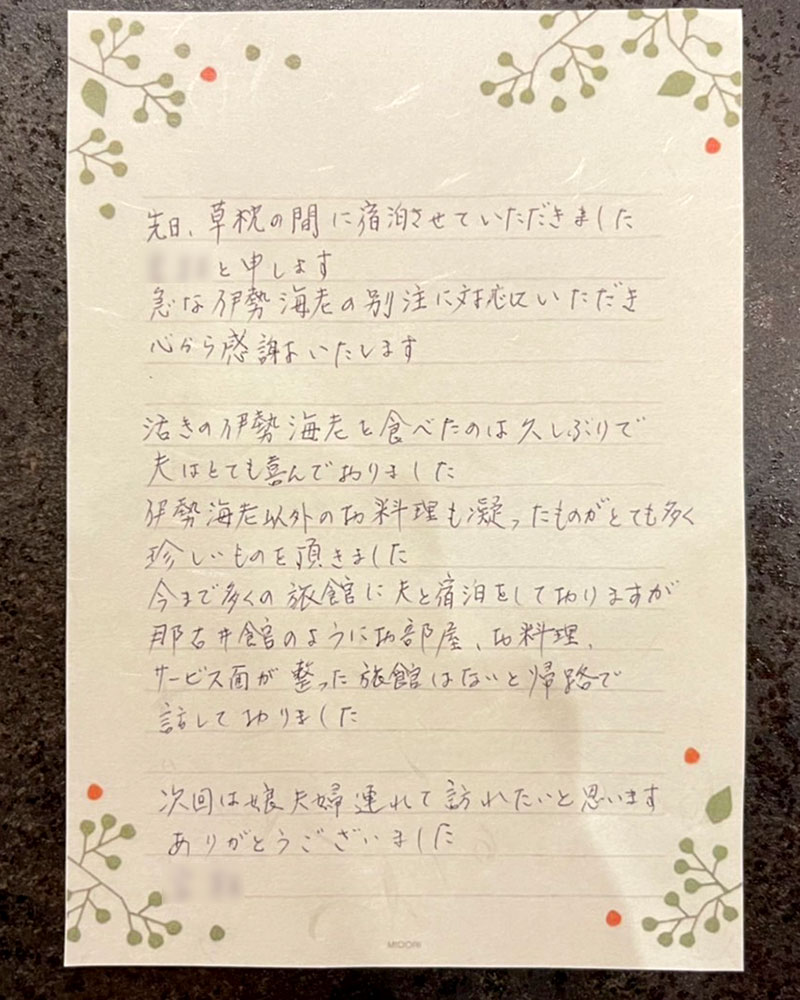 先日、草枕の間に宿泊させていただきました
と申します
急な伊勢海老の別注に対応していただき
心から感謝をいたします
活きの伊勢海老を食べたのは久しぶりで
夫はとても喜んでおりました
伊勢海老以外のお料理も凝ったものがとても多く
珍しいものを頂きました
今まで多くの旅館に夫と宿泊をしておりますが
那古井館のようにお部屋、お料理、
サービス面が整った旅館はないと帰路で
話しておりました
次回は娘夫婦連れて訪れたいと思います
ありがとうございました
MIDORI